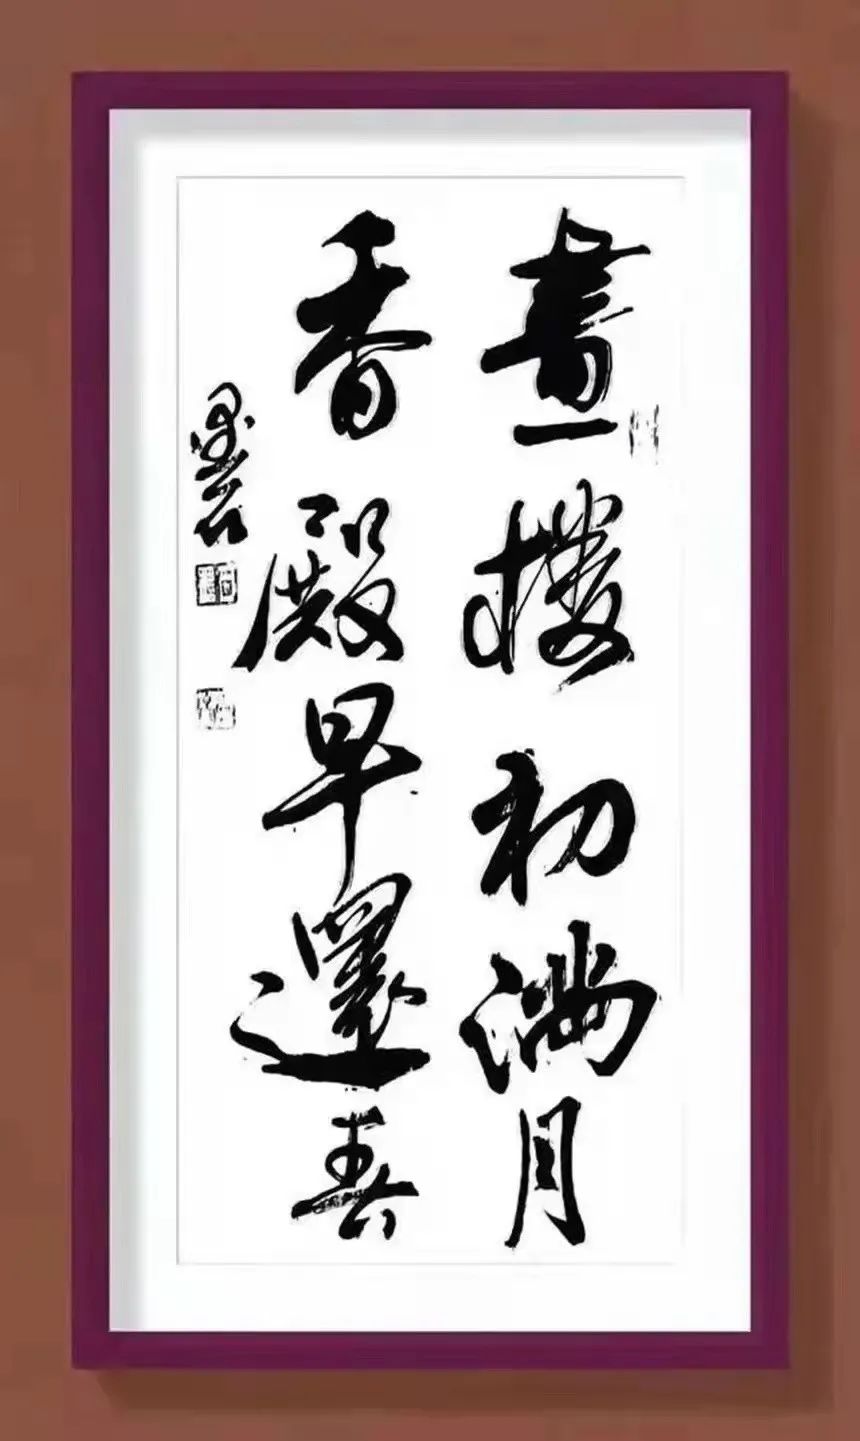 畫樓初滿月
香殿早還春